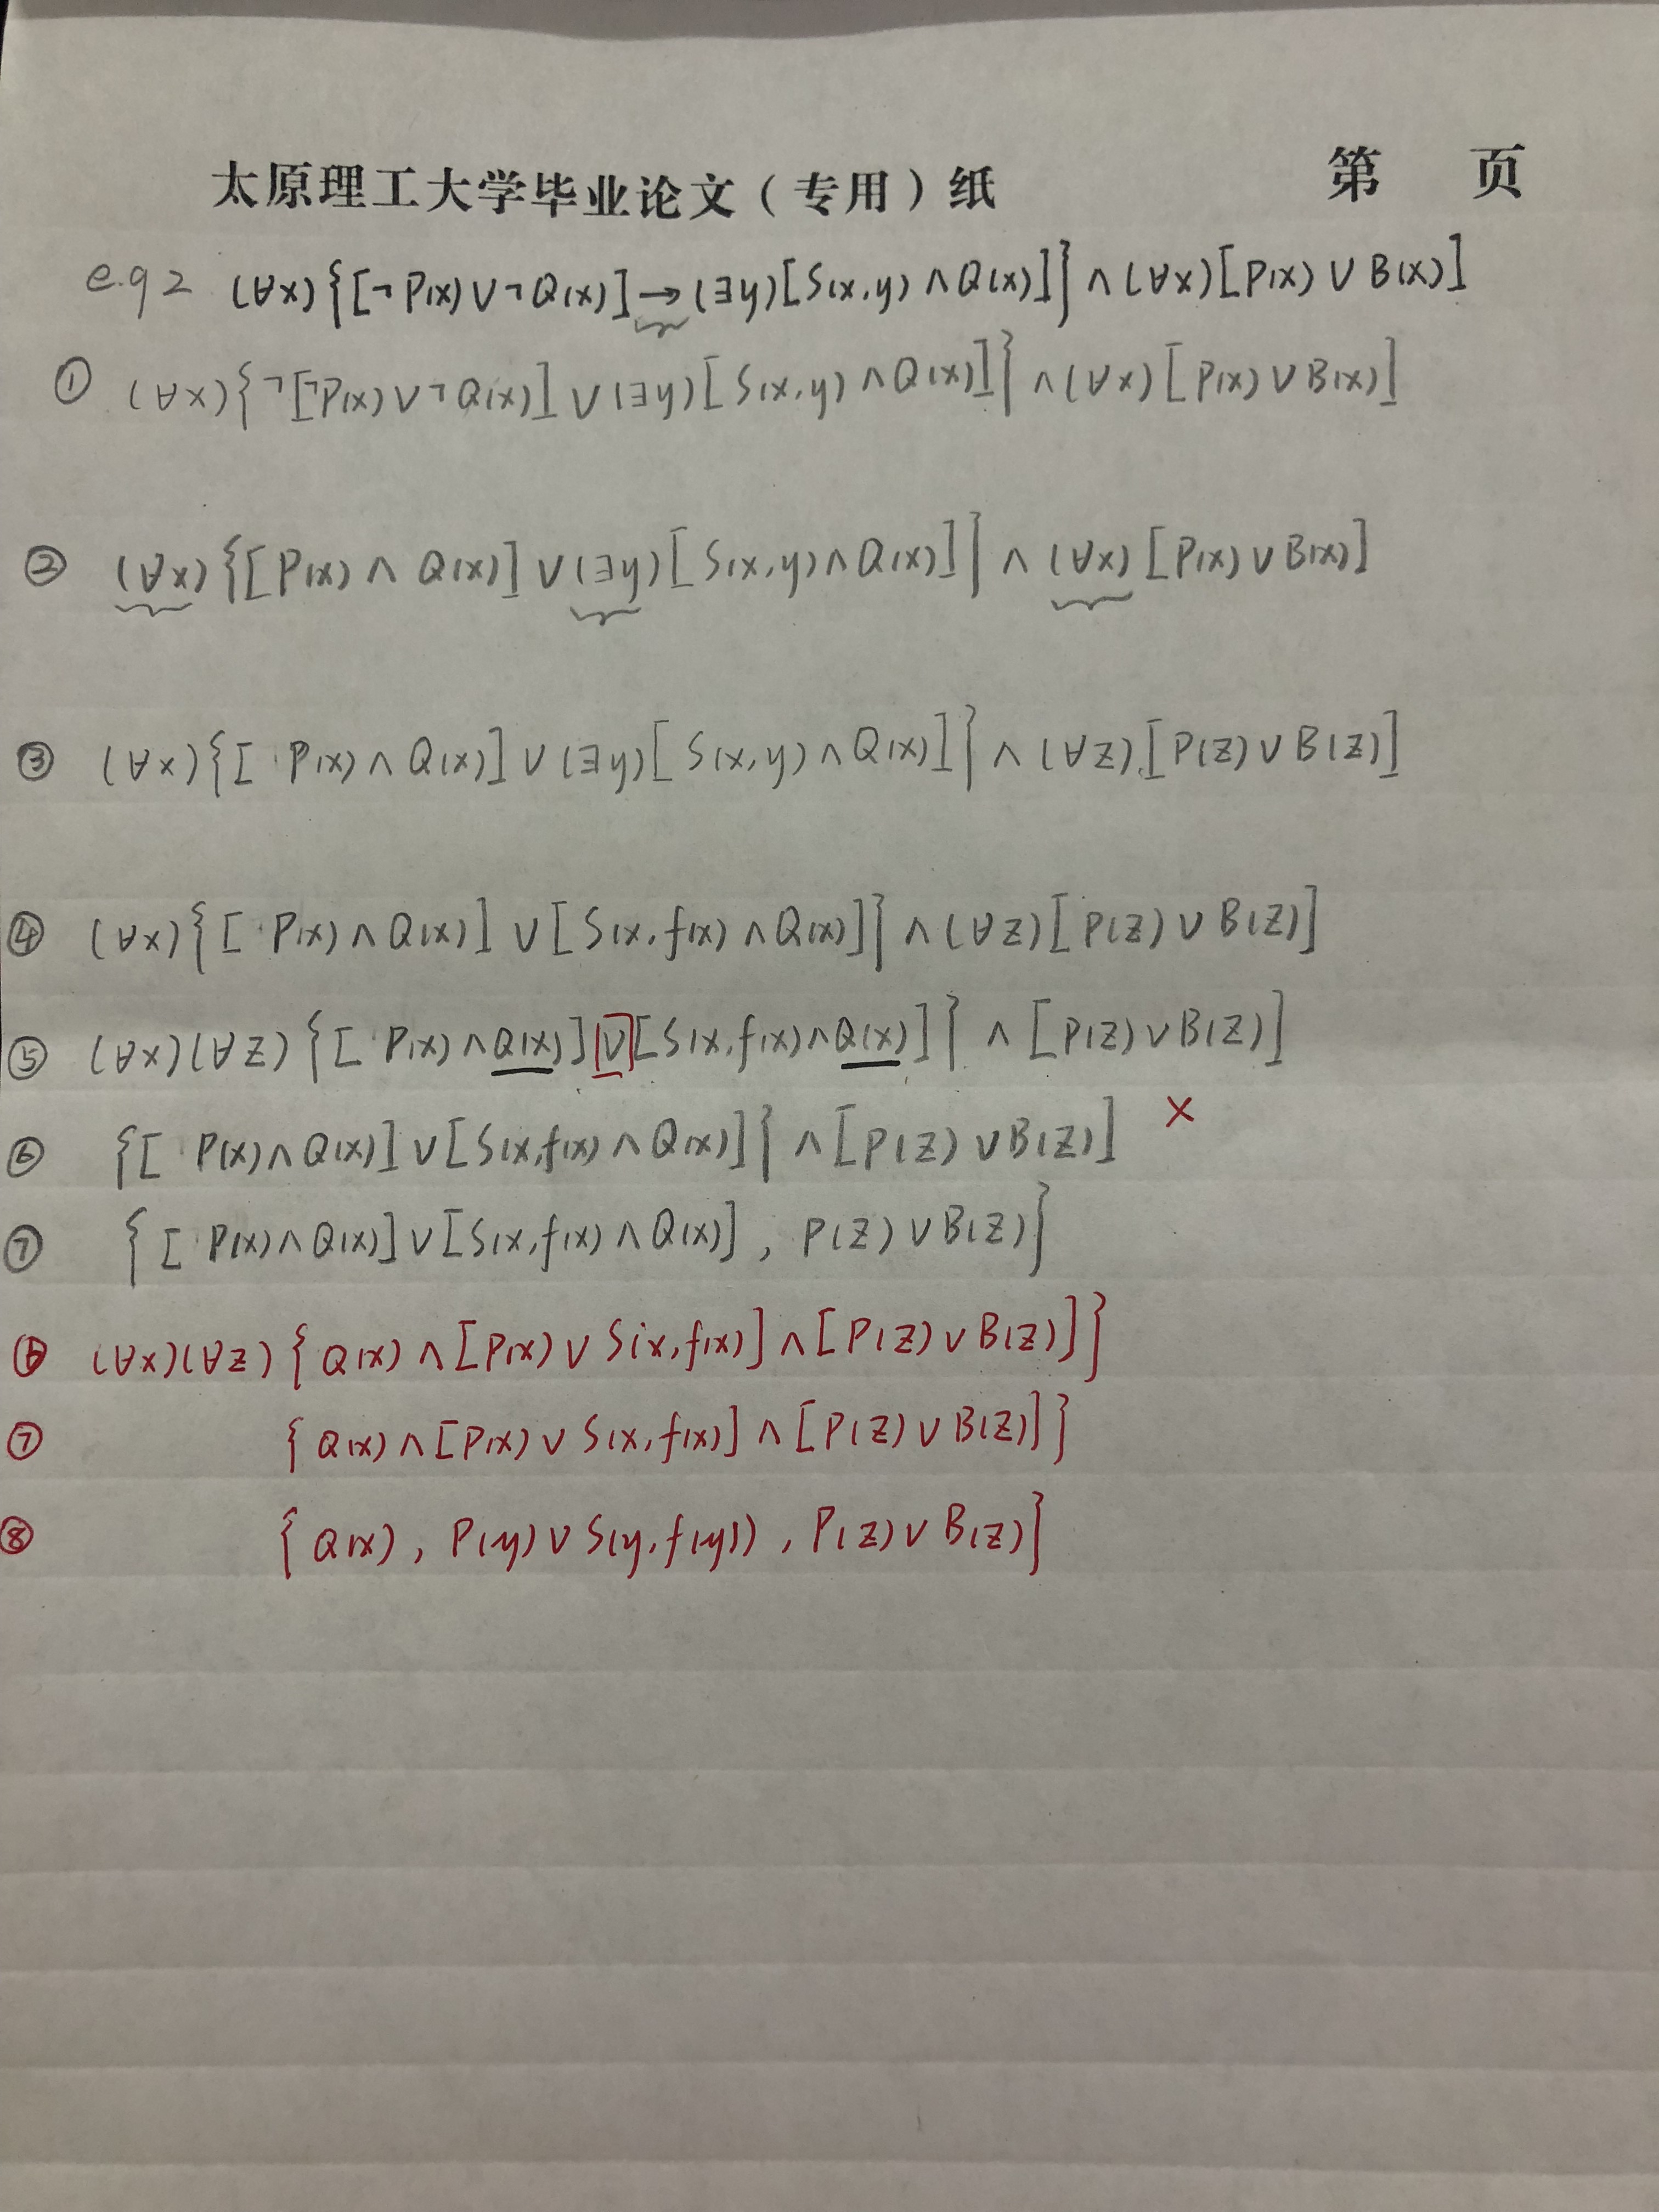 太原理工大学毕业论文（专用）纸 第 页
e.g 2 (∀x){[¬P(x)∨¬Q(x)]→(∃y)[S(x,y)∧Q(x)]}∧(∀x)[P(x)∨B(x)]
① (∀x){¬[¬P(x)∨¬Q(x)]∨(∃y)[S(x,y)∧Q(x)]}∧(∀x)[P(x)∨B(x)]
② (∀x){[P(x)∧Q(x)]∨(∃y)[S(x,y)∧Q(x)]}∧(∀x)[P(x)∨B(x)]
③ (∀x){[P(x)∧Q(x)]∨(∃y)[S(x,y)∧Q(x)]}∧(∀z)[P(z)∨B(z)]
④ (∀x){[P(x)∧Q(x)]∨[S(x,f(x)∧Q(x)]}∧(∀z)[P(z)∨B(z)]
⑤ (∀x)(∀z){[P(x)∧Q(x)]∨[S(x,f(x)∧Q(x)]}∧[P(z)∨B(z)]
⑥ {[P(x)∧Q(x)]∨[S(x,f(x)∧Q(x)]}∧[P(z)∨B(z)] ×
⑦ {[P(x)∧Q(x)]∨[S(x,f(x)∧Q(x)], P(z)∨B(z)}
⑥ (∀x)(∀z){Q(x)∧[P(x)∨S(x,f(x)]∧[P(z)∨B(z)]}
⑦ {Q(x)∧[P(x)∨S(x,f(x)]∧[P(z)∨B(z)]}
⑧ {Q(x), P(y)∨S(y,f(y)), P(z)∨B(z)}